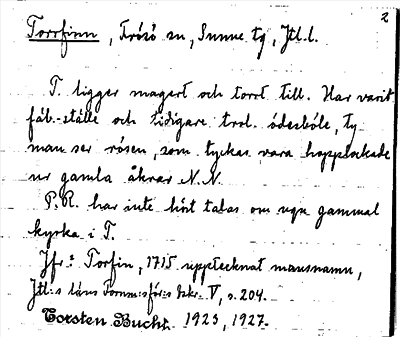 2
Torrfinn, Frösö sn, Sunne tg, Jtl.l.
T. ligger magert och torrt till. Har varit
fäb.-ställe och tidigare trol. ödesböle, ty
man ser rösen, som tyckas vara hopplockade
ur gamla åkrar N.N.
P.R. har inte hört talas om ngn gammal
kyrka i T.
Jfr: Torfin, 1715 upptecknat mansnamn,
Jtl:s läns Fornm.för:s tskr. V, s. 204.
Torsten Bucht. 1923, 1927.